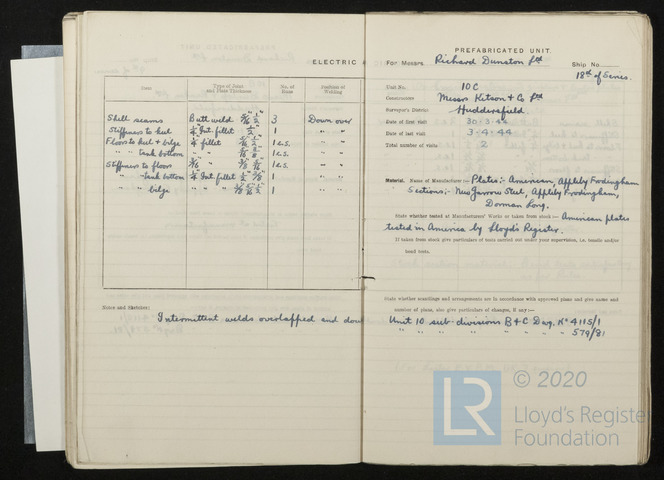 ELECTRIC
Item
Type of Joint and Main Thickness
No. of Runs
Position of Welding
Shell seams Butt weld 5/16" 1/2" 3 Down over
Stiffeners to keel 1/4 Int. fillet 1/2" 1 " "
Floors to keel & bilge 1/4 fillet 1 E.S. " "
" " tank bottom 1 E.S. " "
Stiffeners to floors 1 E.S. " "
" " tank bottom 1/4 Int. fillet 1 " "
" " bilge " " " 1 " "
Notes and Sketches:
Intermittent welds overlapped and
PREFABRICATED UNIT.
For Messrs. Richard Dunston Ltd Ship No.
18th of Series.
Unit No. 10C
Constructor Messrs Kitson & Co Ltd
Surveyor's District Huddersfield
Date of first visit 30-3-44
Date of last visit 3-4-44
Total number of visits 2
Material. Name of Manufacturer:— Plates:- American, Appleby Frodingham
Sections:- New Jarrow Steel, Appleby Frodingham,
Dorman Long.
State whether tested at Manufacturers' Works or taken from stock:— American plates
tested in America by Lloyd's Register.
If taken from stock give particulars of tests carried out under your supervision, i.e. tensile and/or
bend tests.
State whether scantlings and arrangements are in accordance with approved plans and give name and
number of plans, also give particulars of changes, if any:—
Unit 10 sub-divisions B & C Dwg. No 4115/1
" " " " " " " 579/81
© 2020
LR
Lloyd's Register
Foundation